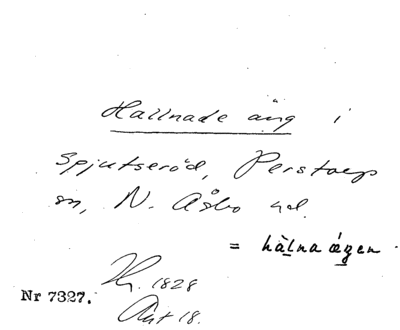 Hallnade äng i
Spjutseröd, Perstorps
sn, N. Åsbo hd.
= hàlna ágen
Nr 7327.
Hz. 1828
Akt 18.